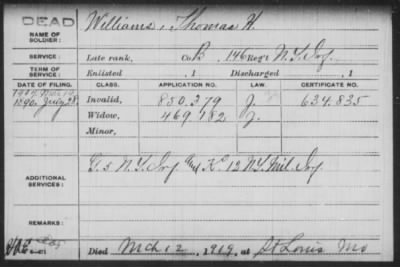 DEAD
NAME OF SOLDIER: Williams, Thomas H.
SERVICE: Late rank, Co. B, 146 Reg't N.Y. Inf.
TERM OF SERVICE: Enlisted , 1 Discharged , 1
DATE OF FILING. CLASS. APPLICATION NO. LAW. CERTIFICATE NO.
1890. July 28. Invalid, 850.379 J. 634.835
Widow, 469 182 J.
Minor,
ADDITIONAL SERVICES: G. 5 N.Y. Inf. and K. 12 N.Y. Mil. Inf.
REMARKS:
Died Mch 12, 1919, at St Louis Mo